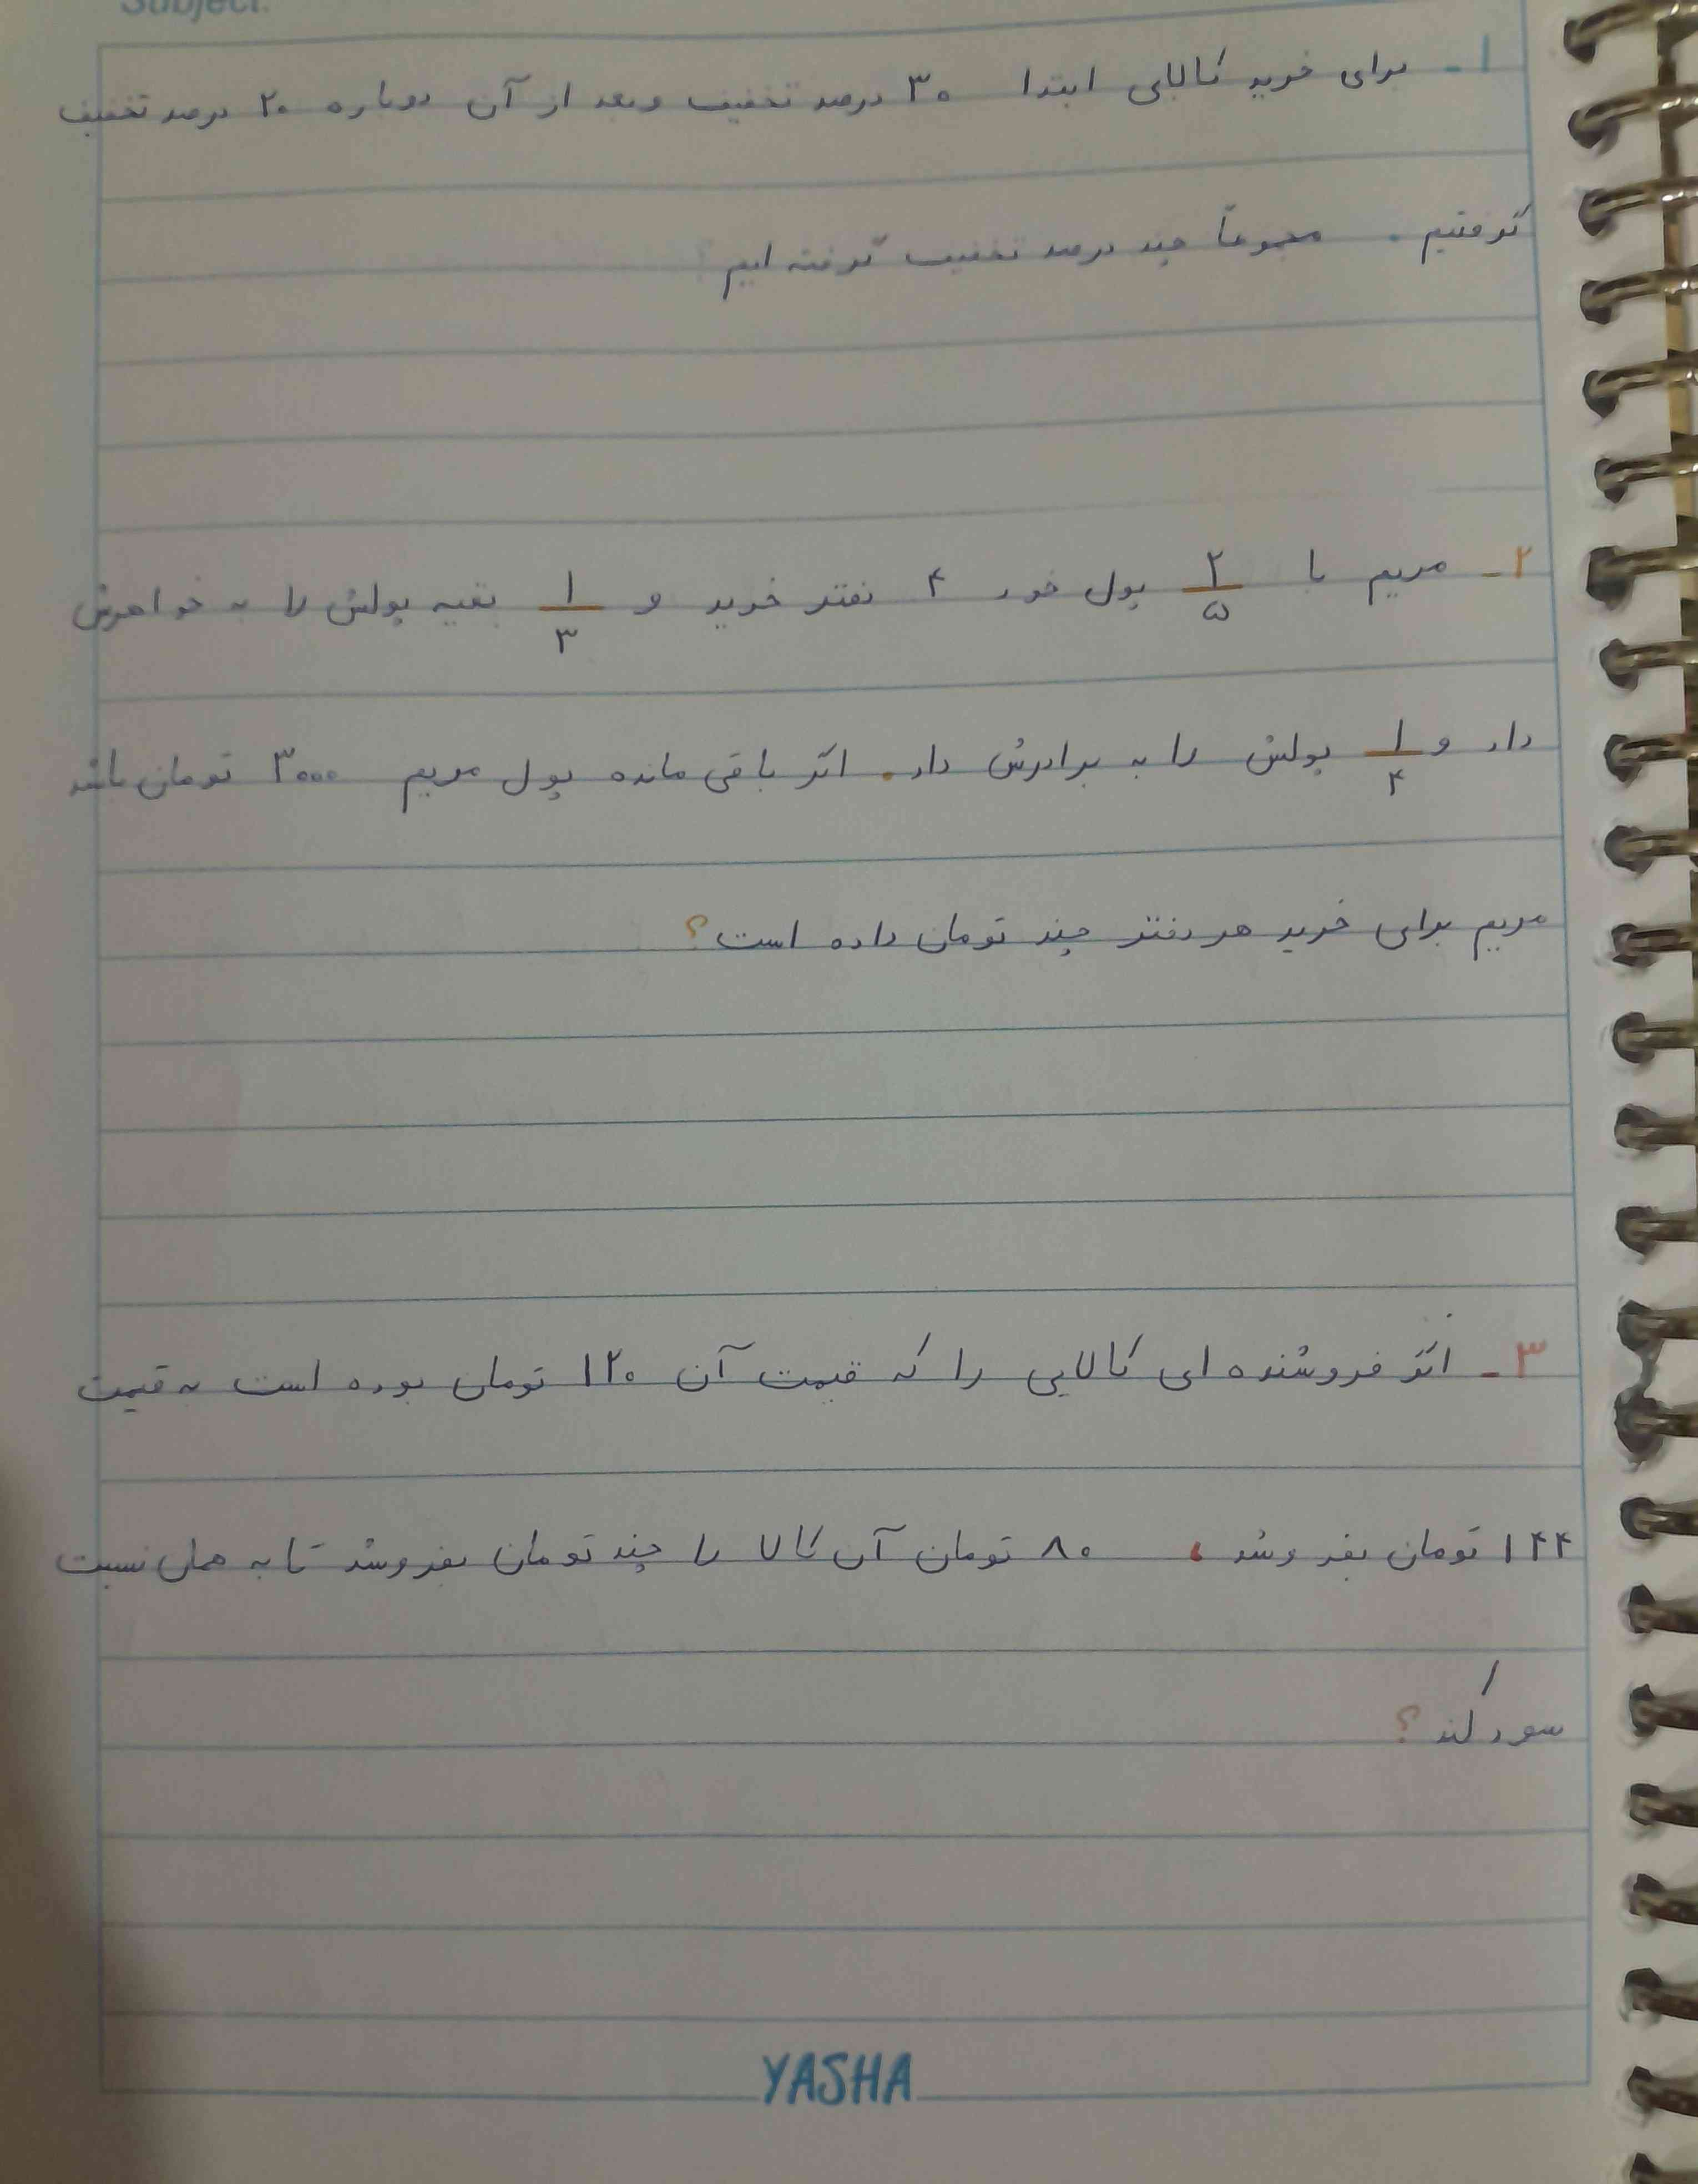 Subject:
۱- برای خرید کالایی ابتدا ۳۰ درصد تخفیف و بعد از آن دوباره ۲۰ درصد تخفیف
گرفتیم . مجموعاً چند درصد تخفیف گرفته ایم
۲- مریم با ۲/۵ پول خود ۴ دفتر خرید و ۱/۳ بقیه پولش را به خواهرش
داد و ۱/۴ پولش را به برادرش داد. اگر باقی مانده پول مریم ۳۰۰۰ تومان باشد
مریم برای خرید هر دفتر چند تومان داده است؟
۳- اگر فروشنده ای کالایی را که قیمت آن ۱۲۰ تومان بوده است به قیمت
۱۴۴ تومان بفروشد ، ۸۰ تومان آن کالا را چند تومان بفروشد تا به همان نسبت
سود کند ؟
YASHA